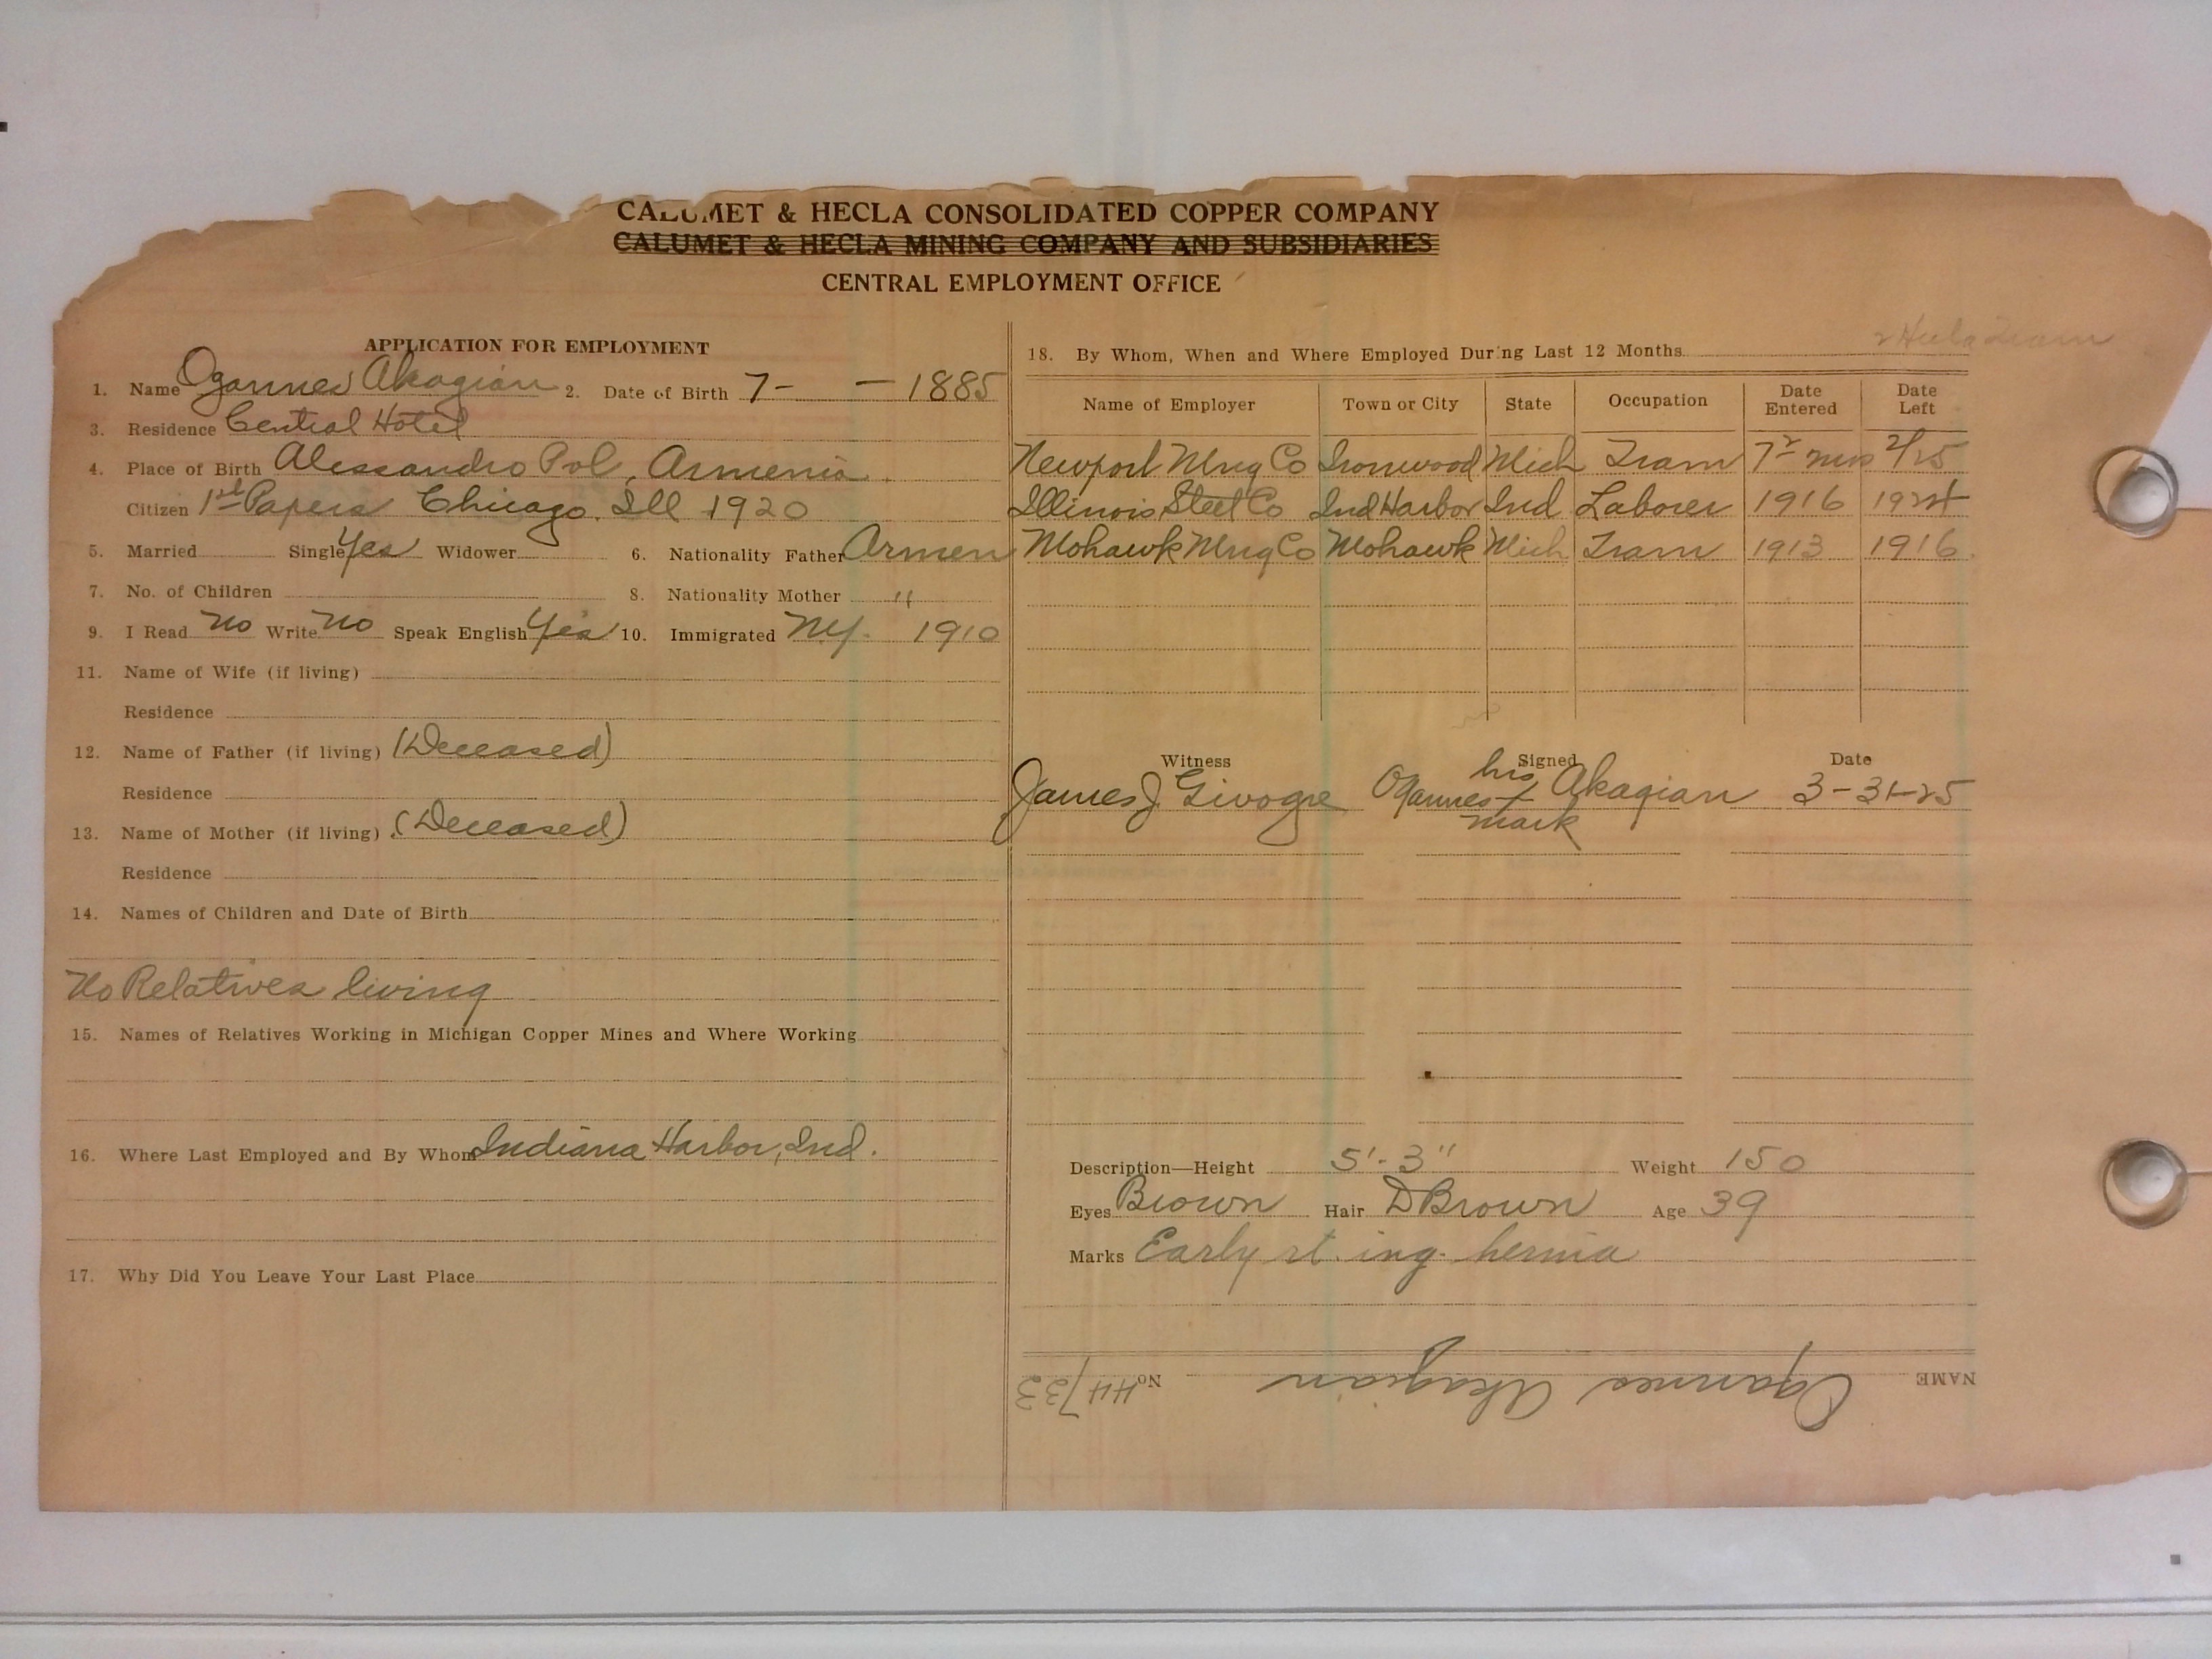 CALUMET & HECLA CONSOLIDATED COPPER COMPANY
CALUMET & HECLA MINING COMPANY AND SUBSIDIARIES
CENTRAL EMPLOYMENT OFFICE
APPLICATION FOR EMPLOYMENT
1. Name Ogannes Akagian 2. Date of Birth 7- - 1885
3. Residence Central Hotel
4. Place of Birth Alessandro Pol, Armenia
Citizen 1st Papers Chicago, Ill 1920
5. Married Single Yes Widower 6. Nationality Father Armen
7. No. of Children 8. Nationality Mother "
9. I Read No Write No Speak English Yes 10. Immigrated N.Y. 1910
11. Name of Wife (if living)
Residence
12. Name of Father (if living) (Deceased)
Residence
13. Name of Mother (if living) (Deceased)
Residence
14. Names of Children and Date of Birth
No Relatives living
15. Names of Relatives Working in Michigan Copper Mines and Where Working
16. Where Last Employed and By Whom Indiana Harbor, Ind.
17. Why Did You Leave Your Last Place
18. By Whom, When and Where Employed During Last 12 Months
Name of Employer Town or City State Occupation Date Entered Date Left
Newport Mng Co Ironwood Mich Tram 2/25
Illinois Steel Co Ind Harbor Ind Laborer 1916 1924
Mohawk Mng Co Mohawk Mich Tram 1913 1916
Witness Signed Date
his
James J. Ogannes + Akagian 3-31-25
mark
Description—Height 5'-3" Weight 150
Eyes Brown Hair D Brown Age 39
Marks Early rt. ing. hernia
NAME Ogannes Akagian No. 44733